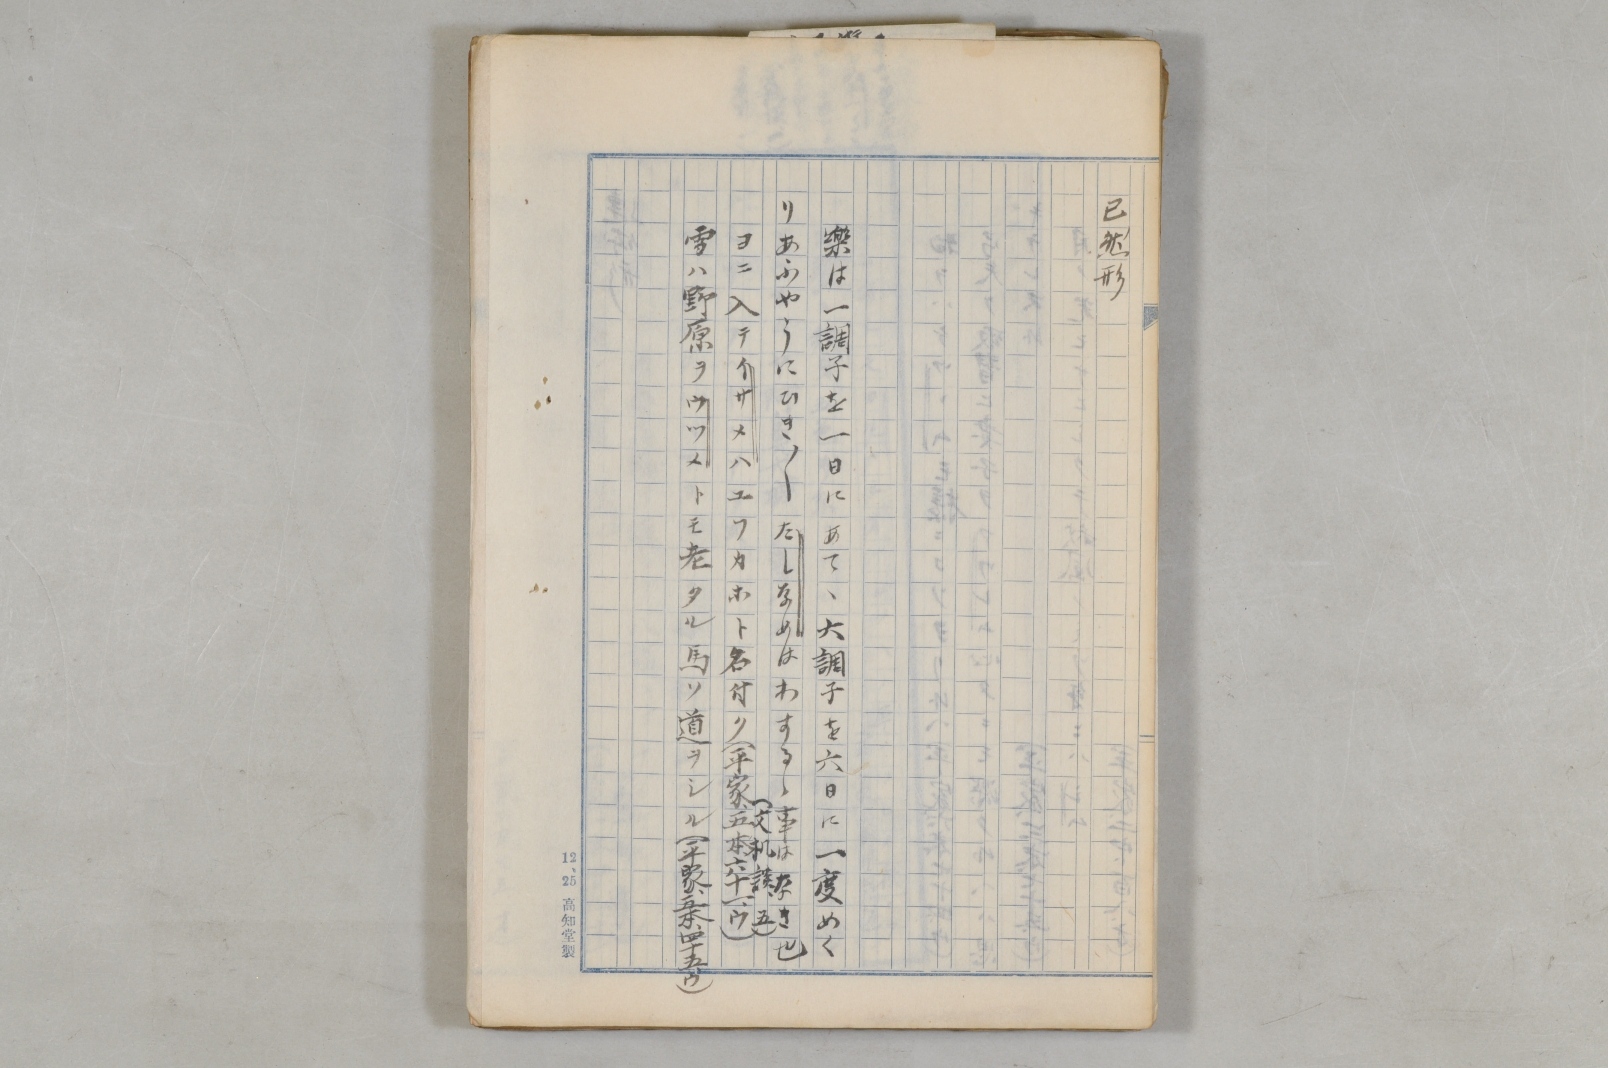 已然形
樂は一調子を一日にあてゝ大調子を六日に一度めく
りあふやうにひき〳〵たしなめはわするゝ事はなき也
(文机談、五)
ヨニ入テイサメハユワカホト名付ク(平家、五本、六十一、ウ)
雪ハ野原ヲウツメトモ老タル馬ソ道ヲシル(平家、五本、四十五ウ)
12、25 高知堂製